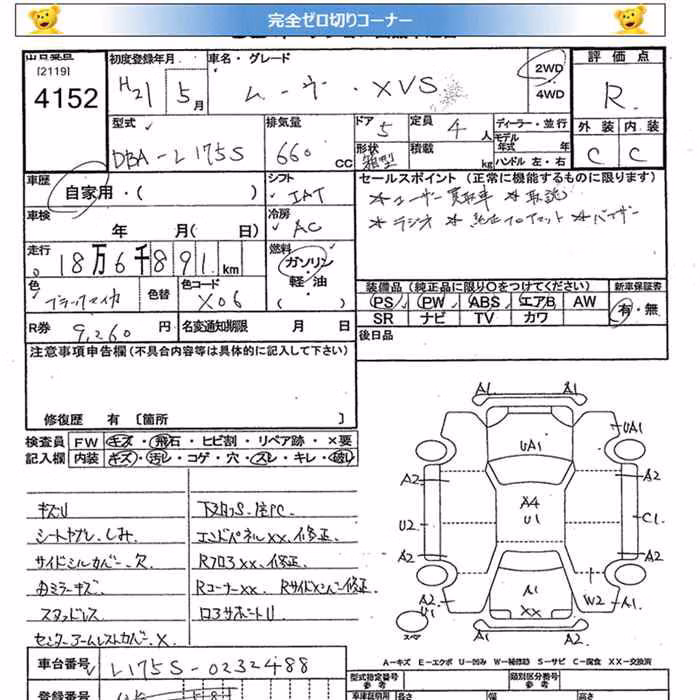 完全ゼロ切りコーナー
[2119]
4152
初度登録年月
H21 5月
車名・グレード
ムーヴ・XVS
2WD
4WD
評価点
R
外装 内装
C C
型式
DBA-L175S
排気量
660 CC
ドア 5
形状 箱型
定員 4人
積載 kg
ディーラー・並行
モデル年式 年
ハンドル 左・右
車歴
自家用・( )
シフト
IAT
冷房
AC
セールスポイント (正常に機能するものに限ります)
*ユーザー買取車 *取説
*ラジオ
車検
年 月( 日)
走行
18万6千891km
燃料
ガソリン・
軽・油
・( )
色
ブラックマイカ
色替
色コード
X06
装備品 (純正品に限り○をつけてください)
新車保証書
PS PW ABS エアB AW
SR ナビ TV カワ
有・無
R券 9,260円
名変通知期限 月 日
後日品
注意事項申告欄(不具合内容等は具体的に記入して下さい)
修復歴 有 [箇所 ]
検査員記入欄
FW キズ・飛石・ヒビ割・リペア跡・×要
内装 キズ・汚レ・コゲ・穴・スレ・キレ・破レ
キズU
シートヤブレ、しみ
サイドシルカバー欠
内ミラーキズ
スタッドレス
センターアームレストカバー×
エンドパネルXX、修正
RフロアXX、修正
RコーナーXX
コアサポートU
A1
A1
UA1
UA1
A2
A2
A4
U1
U2
C1
A2
A2
A1
XX
W2
A1
A2
U1
A2
スペア
A-キズ E-エクボ U-凹み W-補修跡 S-サビ C-腐食 XX-交換済
車台番号
L175S-0232488
型式指定番号
参考
類別区分番号
参考
登録番号
車庫証明用
長さ
幅
高さ